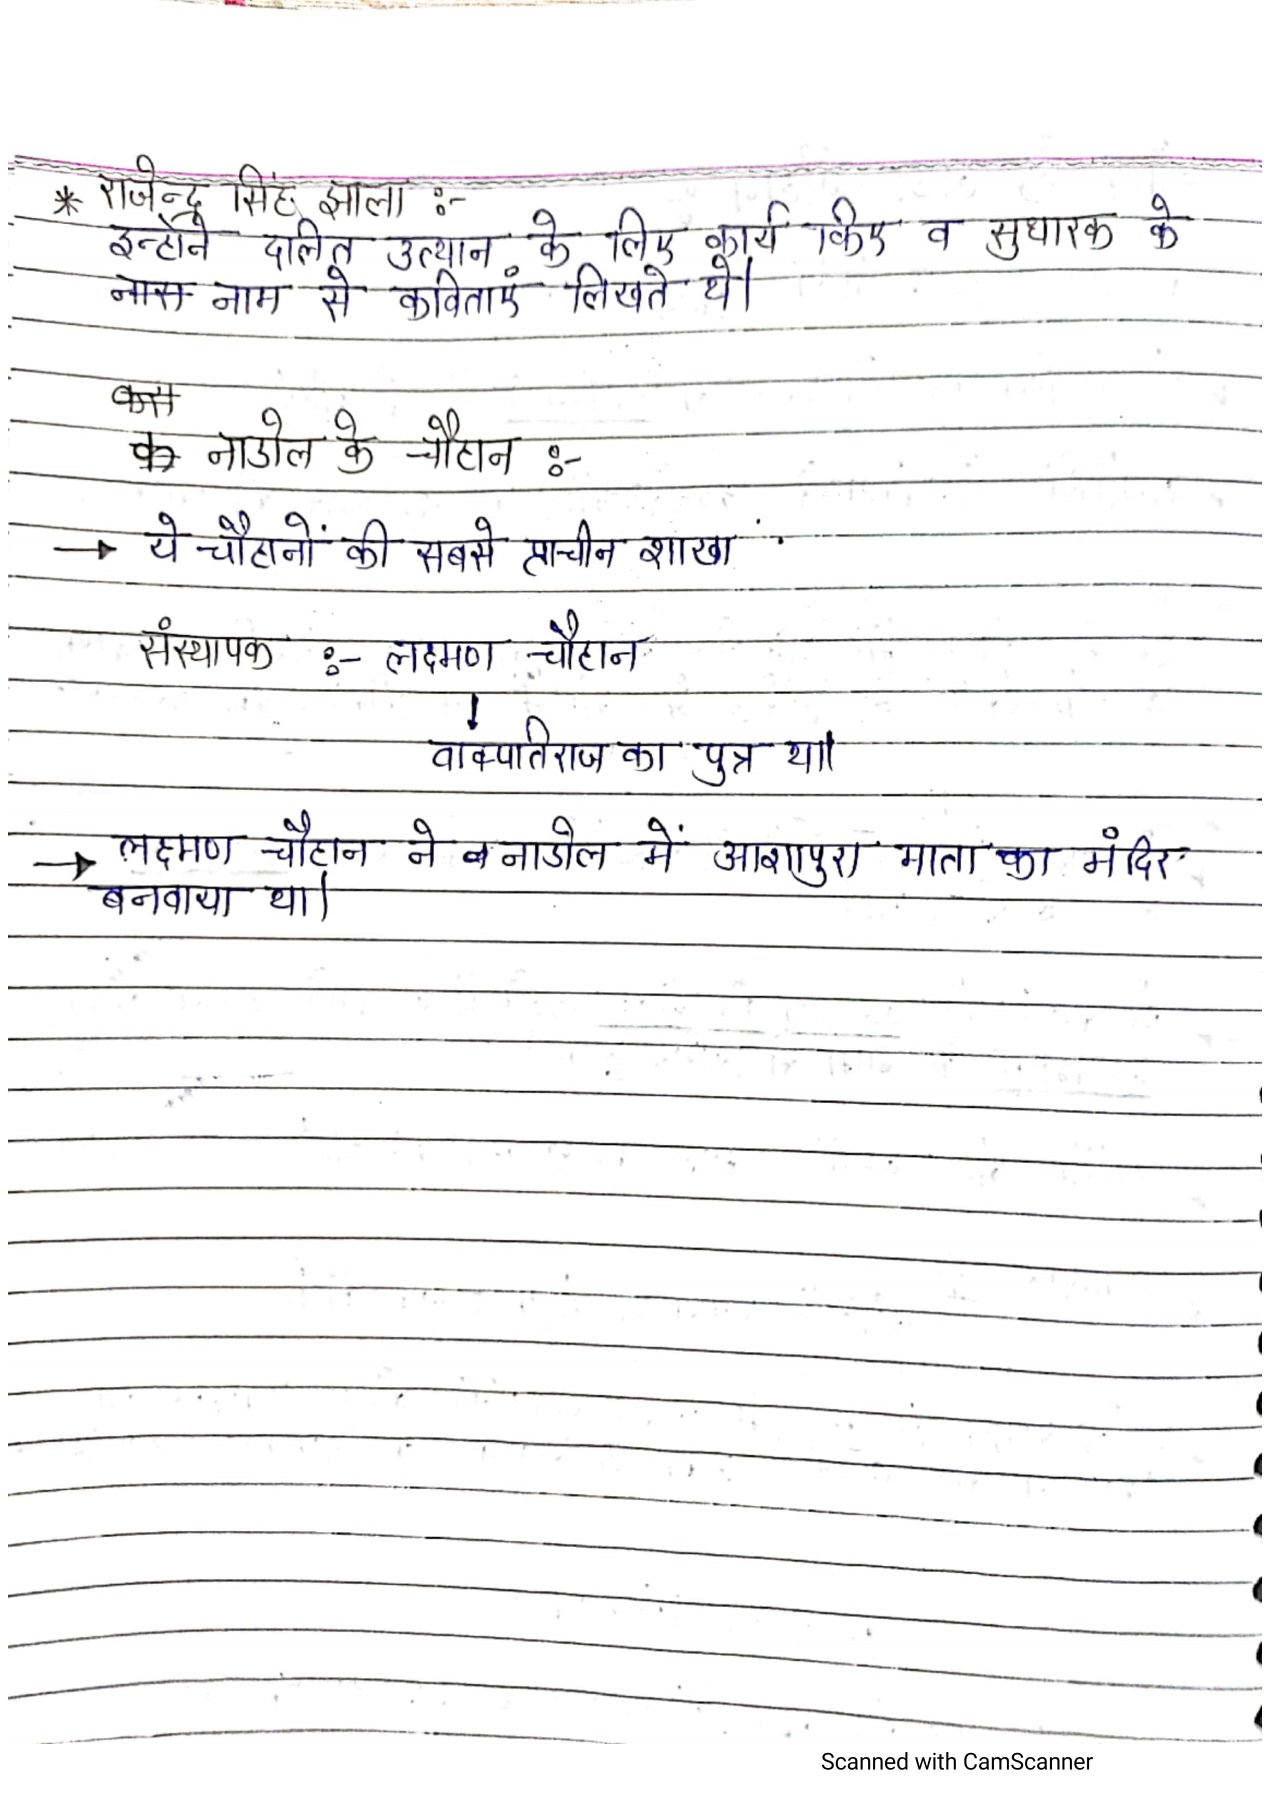 * राजेन्द्र सिंह झाला :-
इन्होंने दलित उत्थान के लिए कार्य किए व सुधारक के
नाम से कविताएं लिखते थे।
नाडोल के चौहान :-
→ ये चौहानों की सबसे प्राचीन शाखा
संस्थापक :- लक्ष्मण चौहान
↓
वाक्पतिराज का पुत्र था।
→ लक्ष्मण चौहान ने नाडोल में आशापुरा माता का मंदिर
बनवाया था।
Scanned with CamScanner